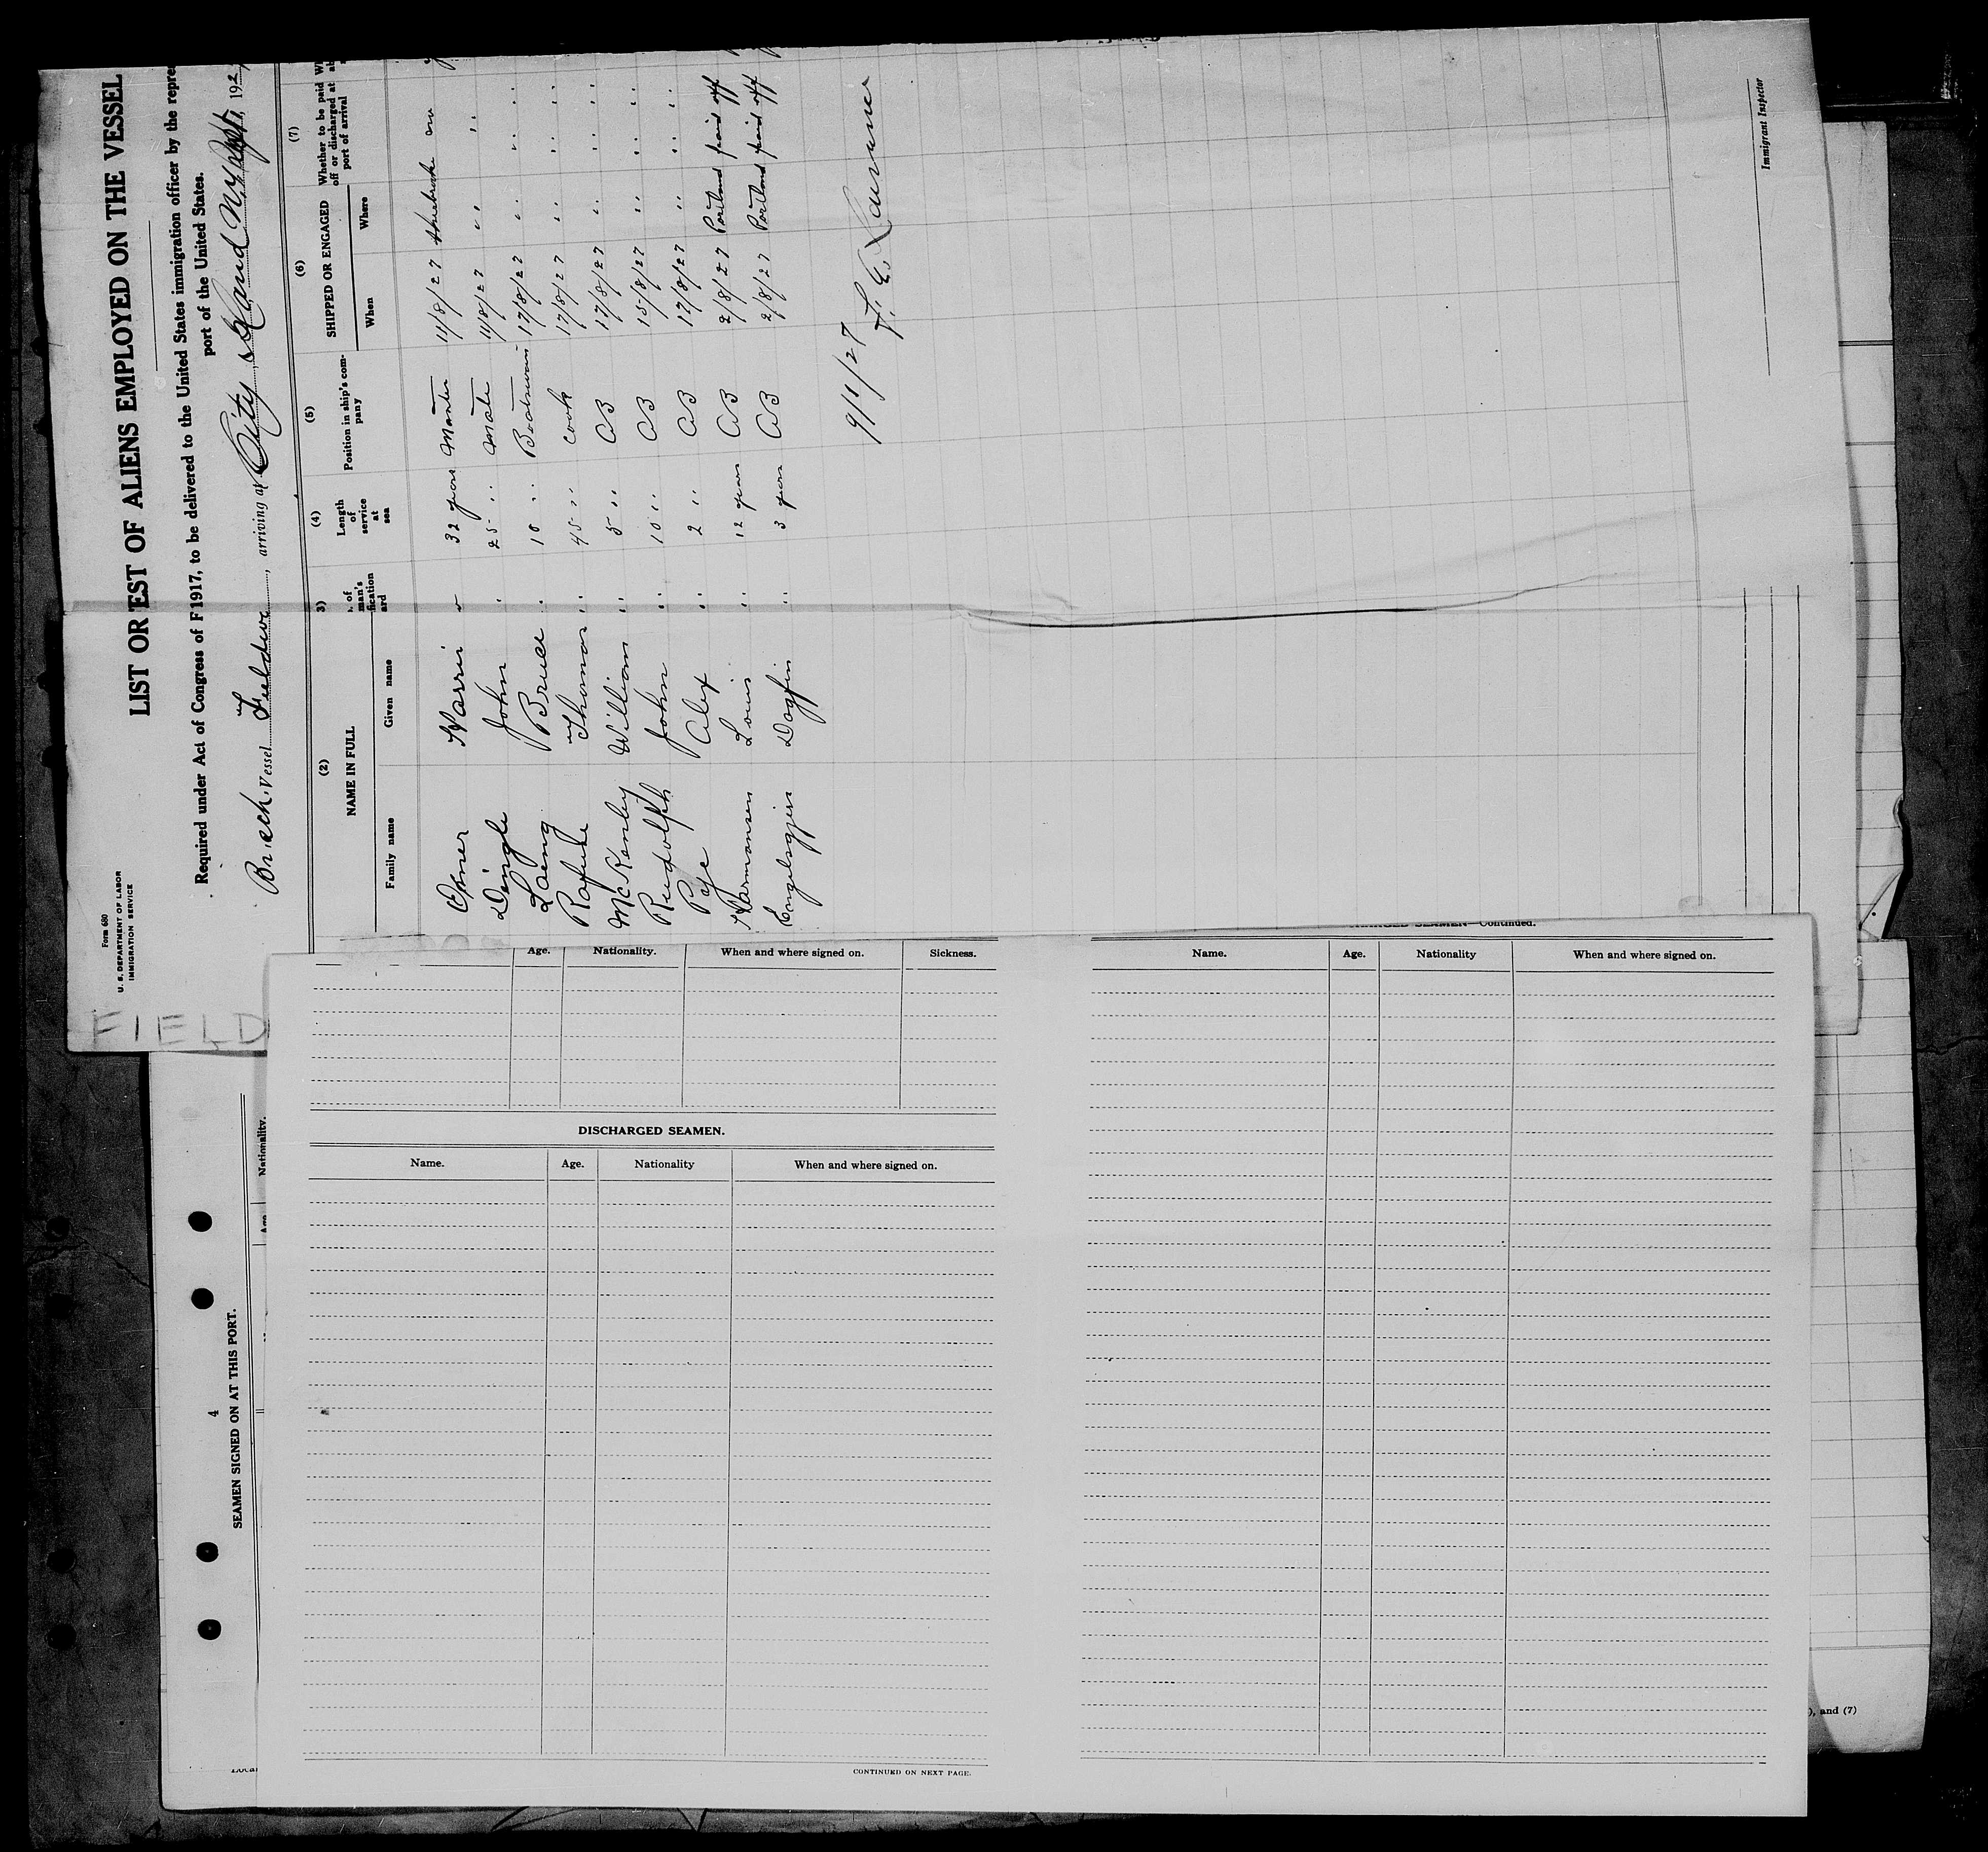 Form 680
U. S. DEPARTMENT OF LABOR
IMMIGRATION SERVICE
LIST OR EST OF ALIENS EMPLOYED ON THE VESSEL
Required under Act of Congress of F 1917, to be delivered to the United States immigration officer by the repre
port of the United States.
Br. sch. Vessel, arriving at City Island N.Y., 192
(2) 3) (4) (5) (6) (7)
NAME IN FULL
Family name Given name
. of man's fication ard
Length of service at sea
Position in ship's company
SHIPPED OR ENGAGED
When Where
Whether to be paid off or discharged at port of arrival
Harris 32 years Master 11/8/27
Dingle John 25 " Mate 11/8/27 "
Laing Bruce 18 " Boatswain 17/8/27 "
Rafuse Thomas 45 " cook 17/8/27 "
McKenley William 5 " AB 17/8/27 "
Rudolph John 10 " AB 15/8/27 "
Pye Alex 2 " AB 17/8/27 "
Harmansen Louis " 12 years AB 2/8/27 Portland paid off
Dagfin " 3 years AB 2/8/27 Portland paid off
9/1/27
Immigrant Inspector
FIELD
Age. Nationality. When and where signed on. Sickness.
DISCHARGED SEAMEN.
Name. Age. Nationality When and where signed on.
CONTINUED ON NEXT PAGE.
SEAMEN—Continued.
Name. Age. Nationality When and where signed on.
4
SEAMEN SIGNED ON AT THIS PORT.
Age Nationality.
), and (7)